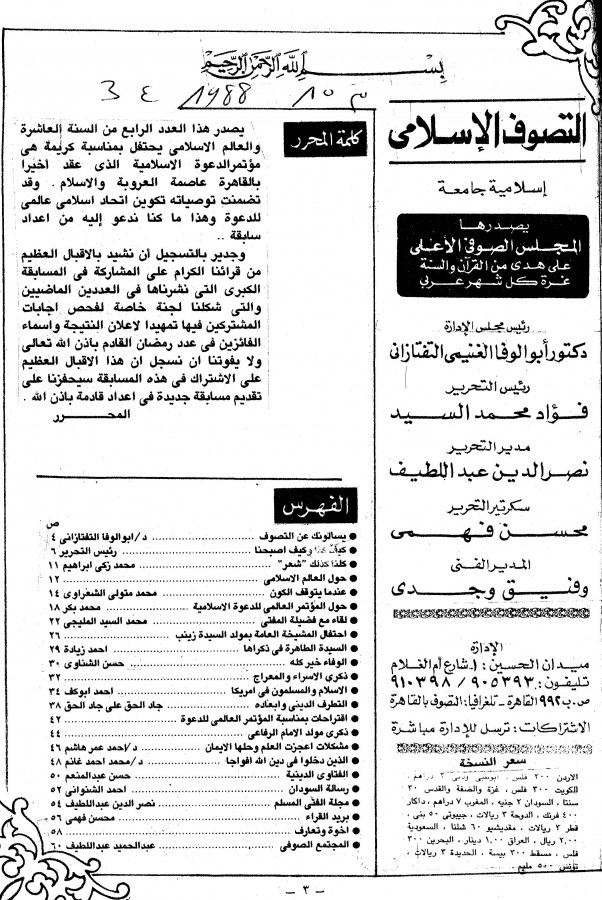 بسم الله الرحمن الرحيم
3 ٤ 1988 م ١٥
التصوف الإسلامى
إسلامية جامعة
يصدرها
المجلس الصوفى الأعلى
على هدى من القرآن والسنة
غرة كل شهر عربى
رئيس مجلس الإدارة
دكتور أبو الوفا الغنيمى التفتازانى
رئيس التحرير
فؤاد محمد السيد
مدير التحرير
نصر الدين عبد اللطيف
سكرتير التحرير
محسن فهمى
المدير الفنى
وفيق وجدى
الإدارة
ميدان الحسين : ١ شارع أم الغلام
تليفون : ٩٠٥٣٩٣ / ٩١٠٣٩٨
ص . ب ٩٩٢ القاهرة - تلغرافيا : التصوف بالقاهرة
الاشتراكات : ترسل للإدارة مباشرة
سعر النسخة
الاردن ٣٠٠ فلس ، ابوظبى ودبى ٣ دراهم ،
الكويت ٣٠٠ فلس ، غزة والضفة والقدس ٣٠
سنتا ، السودان ٢ جنيه ، المغرب ٧ دراهم ، داكار
٤٠٠ فرنك ، الدوحة ٣ ريالات ، جيبوتى ٥٠ بنى ،
قطر ٣ ريالات ، مقديشيو ٦٠ شلنا ، السعودية
٢,٠٠ ريال ، العراق ١,٠٠ دينار ، البحرين ٣٠٠
فلس ، مسقط ٣٠٠ بيسة ، الحديدة ٣ ريالات ،
تونس ٥٠٠ مليم .
كلمة المحرر
يصدر هذا العدد الرابع من السنة العاشرة
والعالم الاسلامى يحتفل بمناسبة كريمة هى
مؤتمر الدعوة الاسلامية الذى عقد اخيرا
بالقاهرة عاصمة العروبة والاسلام . وقد
تضمنت توصياته تكوين اتحاد اسلامى عالمى
للدعوة وهذا ما كنا ندعو إليه من اعداد
سابقة ..
وجدير بالتسجيل أن نشيد بالاقبال العظيم
من قرائنا الكرام على المشاركة فى المسابقة
الكبرى التى نشرناها فى العددين الماضيين
والتى شكلنا لجنة خاصة لفحص اجابات
المشتركين فيها تمهيدا لاعلان النتيجة واسماء
الفائزين فى عدد رمضان القادم باذن الله تعالى
ولا يفوتنا ان نسجل ان هذا الاقبال العظيم
على الاشتراك فى هذه المسابقة سيحفزنا على
تقديم مسابقة جديدة فى اعداد قادمة باذن الله .
المحـــرر
الفهرس
ص
● يسالونك عن التصوف ........ د/ابوالوفا التفتازانى ٤
● كيف كنا وكيف اصبحنا ........ رئيس التحرير ٦
● كلنا كذلك "شعر" ........ محمد زكى ابراهيم ١١
● حول العالم الاسلامى ........ ١٢
● عندما يتوقف الكون ........ محمد متولى الشعراوى ١٤
● حول المؤتمر العالمى للدعوة الاسلامية ........ محمد بكر ١٨
● لقاء مع فضيلة المفتى ........ محمد السيد المليجى ٢٢
● احتفال المشيخة العامة بمولد السيدة زينب ........ ٢٦
● السيدة الطاهرة فى ذكراها ........ احمد زيادة ٢٩
● الوفاء خير كله ........ حسن الشناوى ٣٠
● ذكرى الاسراء والمعراج ........ ٣٢
● الاسلام والمسلمون فى امريكا ........ احمد ابوكف ٣٤
● التطرف الدينى وابعاده ........ جاد الحق على جاد الحق ٣٨
● اقتراحات بمناسبة المؤتمر العالمى للدعوة ........ ٤٢
● ذكرى مولد الامام الرفاعى ........ ٤٤
● مشكلات اعجزت العلم وحلها الايمان ........ د/احمد عمر هاشم ٤٦
● الذين دخلوا فى دين الله افواجا ........ د/محمد احمد غانم ٤٨
● الفتاوى الدينية ........ حسن عبدالمنعم ٥٠
● رسالة السودان ........ احمد الشنوانى ٥٢
● مجلة الفتى المسلم ........ نصر الدين عبداللطيف ٥٤
● بريد القراء ........ محسن فهمى ٥٦
● اخوة وتعارف ........ ٥٨
● المجتمع الصوفى ........ عبدالحميد عبداللطيف ٦٠
- ٣ -